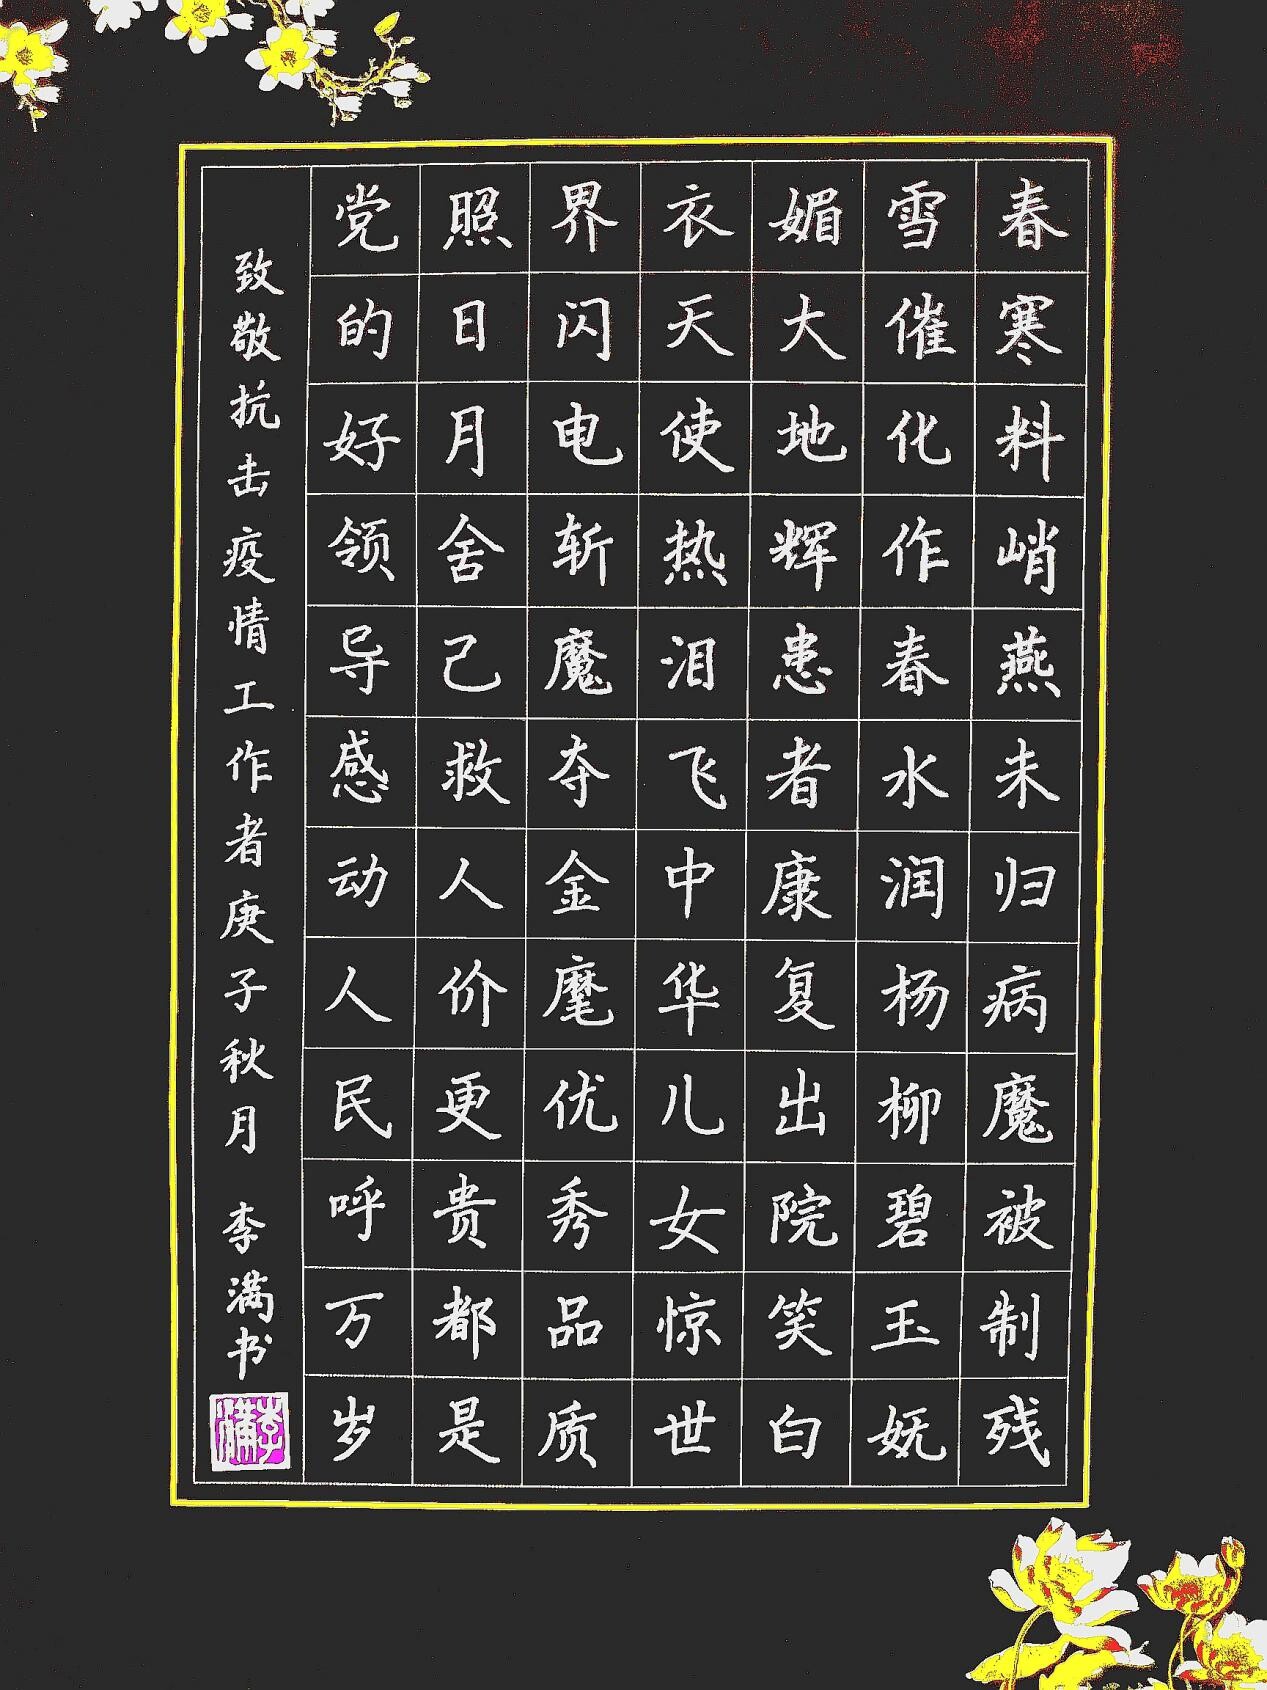 春寒料峭燕未归病魔被制残
雪催化作春水润杨柳碧玉妩
媚大地辉患者康复出院笑白
衣天使热泪飞中华儿女惊世
界闪电斩魔夺金麾优秀品质
照日月舍己救人价更贵都是
党的好领导感动人民呼万岁
致敬抗击疫情工作者庚子秋月 李满书
李满